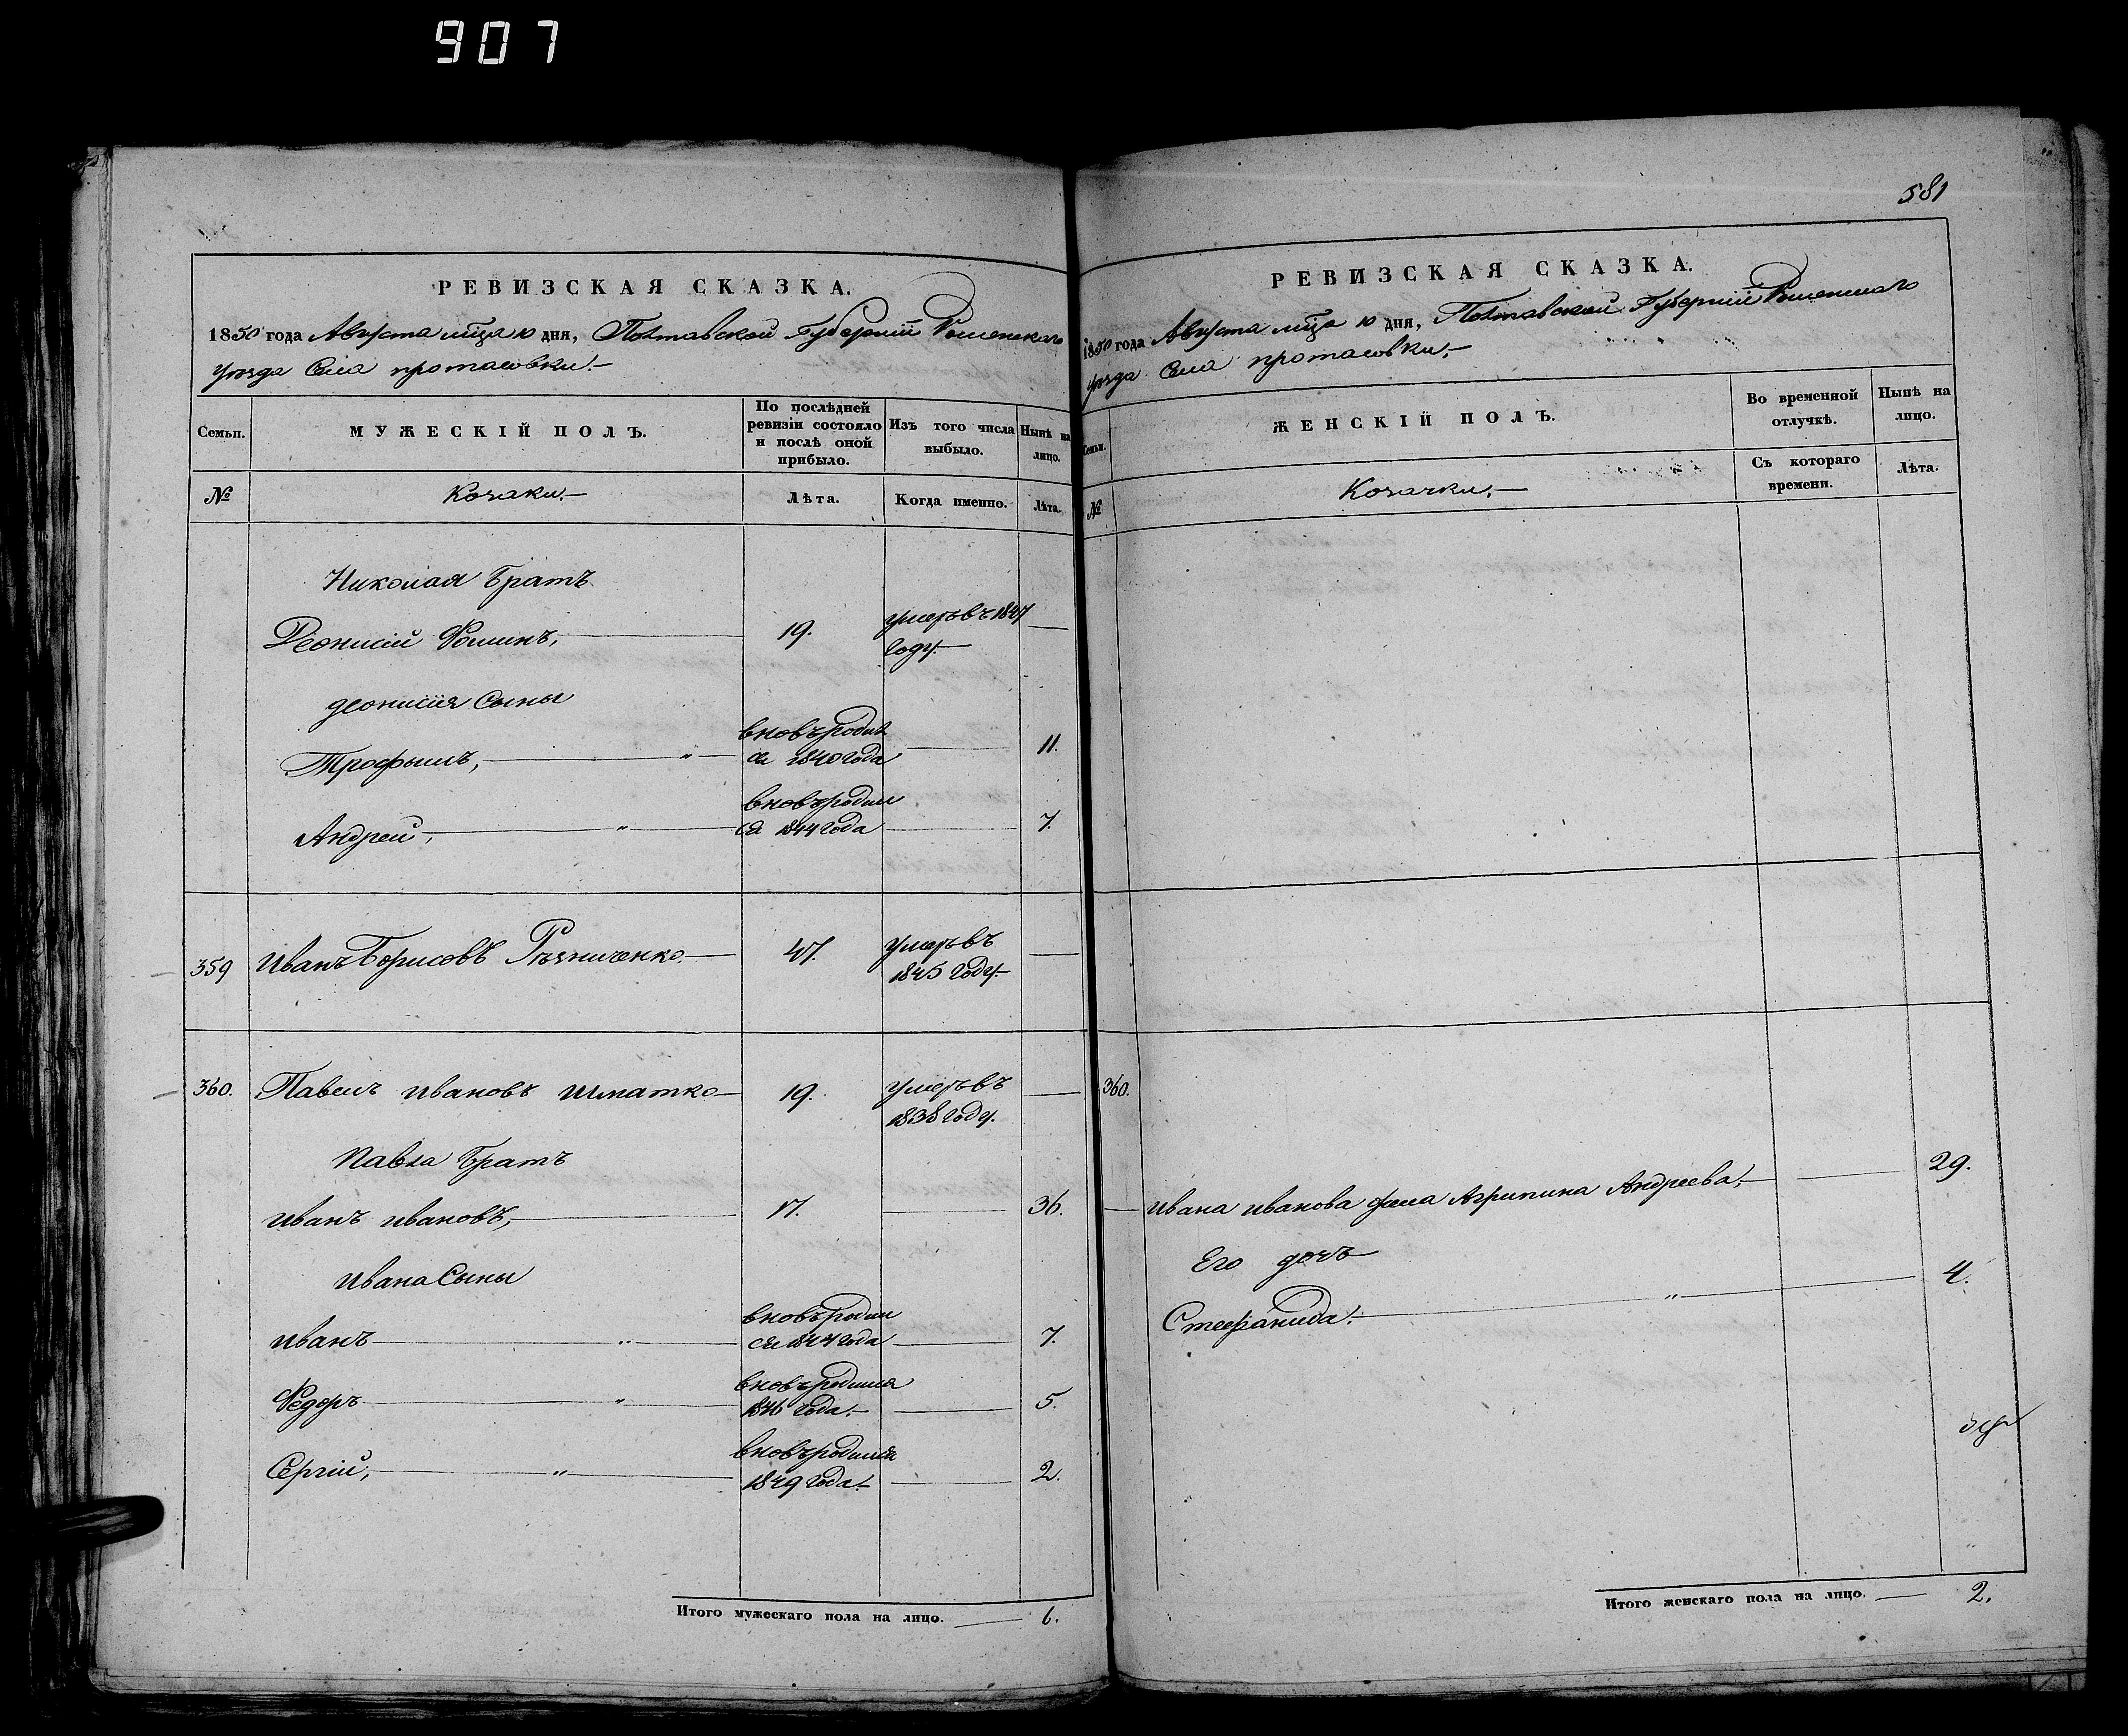 907
РЕВИЗСКАЯ СКАЗКА.
1850 года Августа мца 10 дня, Полтавской Губерніи Роменскаго
уезда Села протасовки.
Семьи.
МУЖЕСКІЙ ПОЛЪ.
По послѣдней ревизіи состояло и послѣ оной прибыло.
Изъ того числа выбыло.
Нынѣ на лицо.
№
Козаки.
Лѣта.
Когда именно.
Лѣта.
Николая Братъ
Деонисій Фоминъ, 19. умеръ въ 1847
году.
деонисія Сыны
вновь родил
Трофымъ, " ся 1840 года 11.
вновь родил
Андрей, " ся 1844 года 7.
359 Иванъ Борисовъ Резниченко. 47. умеръ въ
1845 году.
360. Павелъ Ивановъ Шматко 19. умеръ въ
1838 году.
Павла Братъ
Иванъ Ивановъ, 17. 36.
Ивана Сыны
вновь родил
Иванъ " ся 1844 года 7.
вновь родился
Федоръ " 1846 года. 5.
вновь родился
Сергій, " 1849 года. 2.
Итого мужескаго пола на лицо. 6.
581
РЕВИЗСКАЯ СКАЗКА.
1850 года Августа мца 10 дня, Полтавской Губерніи Роменскаго
уезда Села протасовки.
Семьи.
ЖЕНСКІЙ ПОЛЪ.
Во временной отлучкѣ.
Нынѣ на лицо.
№
Козачки.
Съ котораго времени.
Лѣта.
360.
Ивана Иванова жена Агрипина Андреева, 29.
Его дочь
Стефанида. " 4.
Итого женскаго пола на лицо. 2.